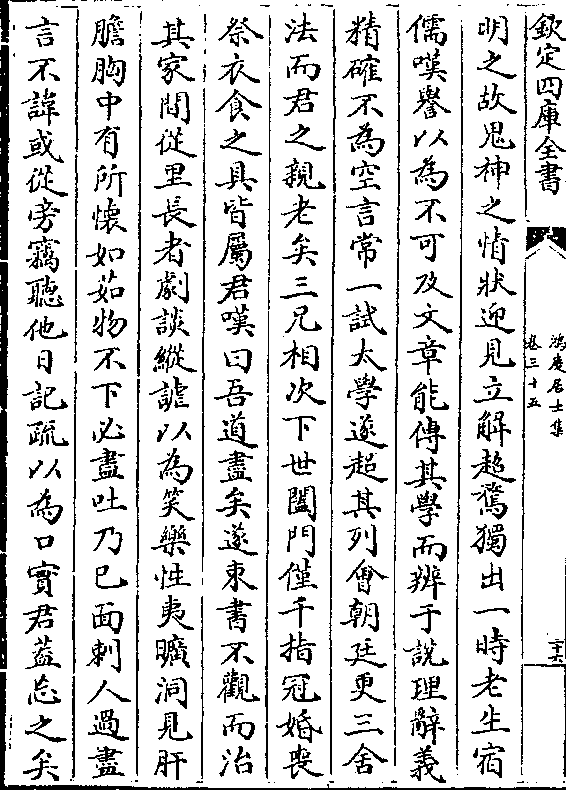 欽定四庫全書
鴻慶居士集
卷三十五
二十六
明之故鬼神之情狀迎見立解超騖獨出一時老生宿
儒嘆譽以為不可及文章能傳其學而辨于說理辭義
精確不為空言常一試太學遂超其列會朝廷更三舍
法而君之親老矣三兄相次下世闔門僅千指冠婚喪
祭衣食之具皆屬君嘆曰吾道盡矣遂束書不觀而治
其家間從里長者劇談縱謔以為笑樂性夷曠洞見肝
膽胸中有所懷如茹物不下必盡吐乃已面刺人過盡
言不諱或從旁竊聽他日記疏以為口實君蓋忘之矣